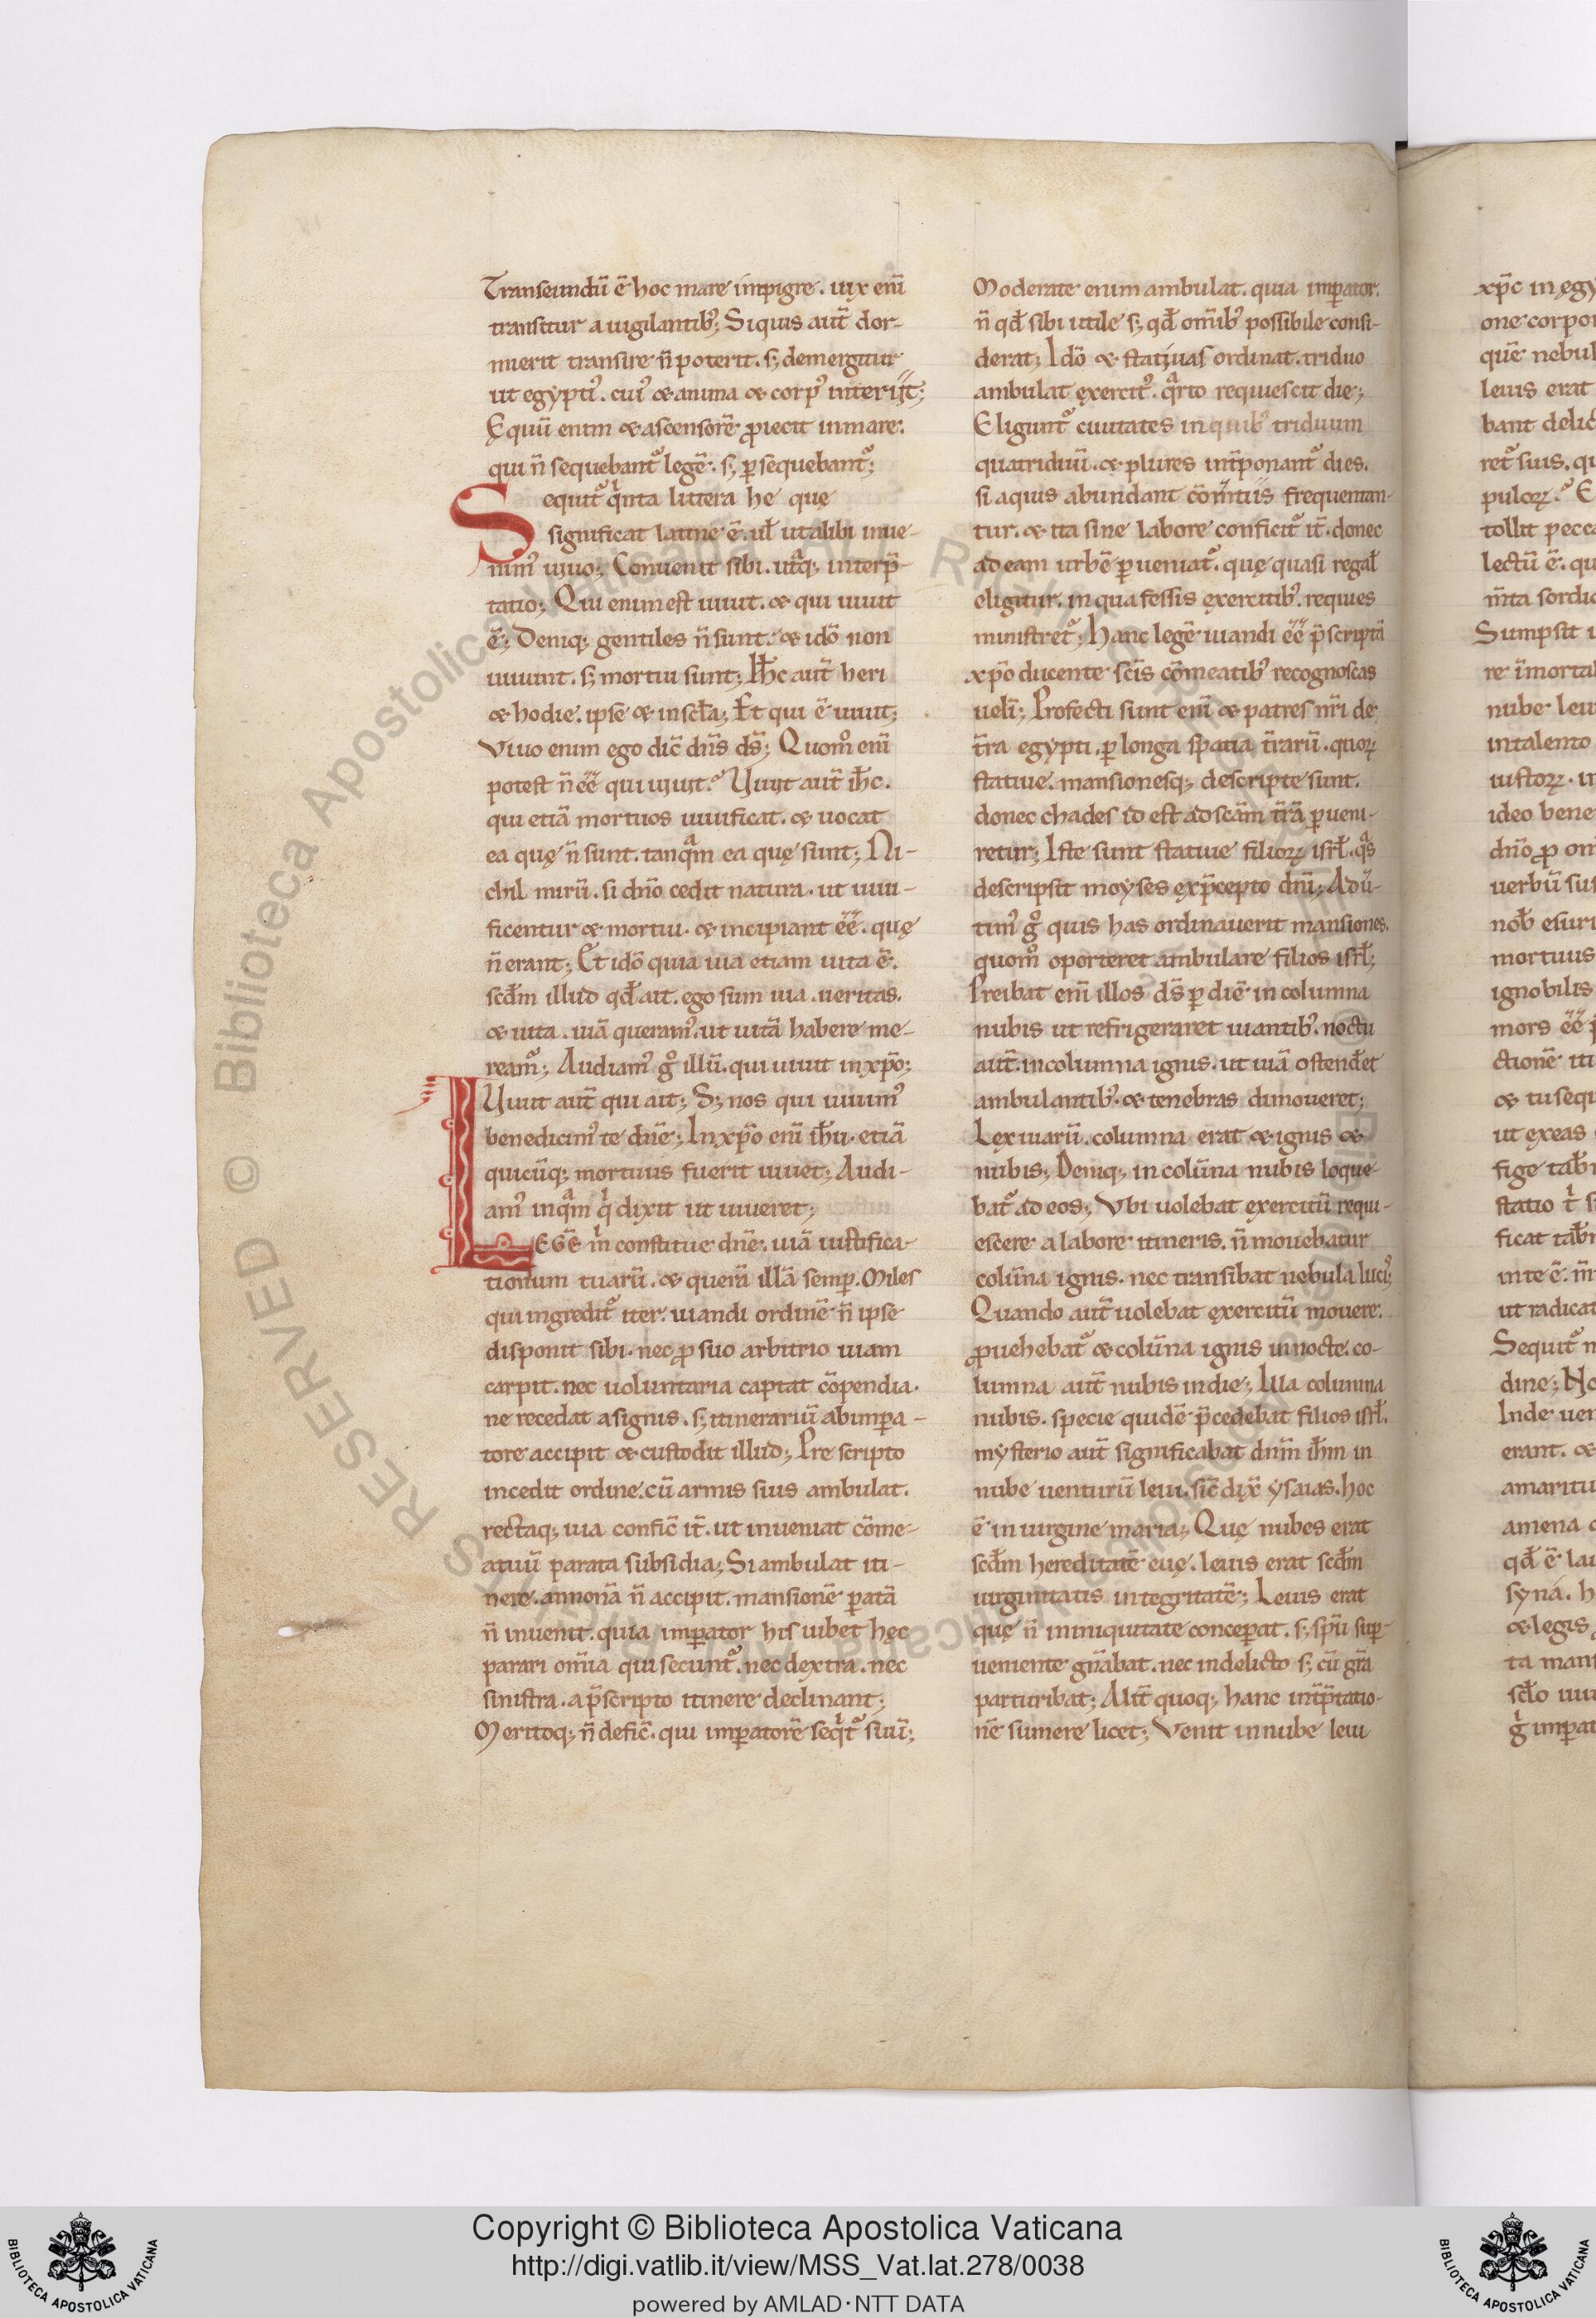 Transeundū ē hoc mare impigre. uix enī
transitur a uigilantib; Si quis aut̄ dor-
mierit transire n̄ poterit. s; demergitur
ut egypti᾽. cui᾽ & anima & corp᾽ interiit;
Ęquū enim & ascensorē ꝓiecit in mare.
qui n̄ sequebant᾽ legē. s; ꝑsequebant᾽;
Sequit᾽ qͥnta littera he quę
significat latine ē. ul᾽ ut alibi inue-
nim᾽ uiuo; Conuenit sibi. utͣq; interp̄-
tatio; Qui enim est uiuit. & qui uiuit
ē; Deniq; gentiles n̄ sunt. & idō non
uiuunt. s; mortui sunt; Ih̄c aut̄ heri
& hodie. ipse & in scl̄a; Et qui ē uiuit;
Viuo enim ego dic̄ dn̄s ds̄; Quom̊ enī
potest n̄ ēē qui uiuit. Uiuit aut̄ ih̄c.
qui etiā mortuos uiuificat. & uocat
ea quę n̄ sunt. tanqͣm ea quę sunt; Ni-
chil mirū. si dn̄o cedit natura. ut uiui-
ficentur & mortui. & incipiant ēē. quę
n̄ erant; Et idō quia uia etiam uita ē.
scd̄m illud qd̄ ait. ego sum uia. ueritas.
& uita. uiā queram᾽. ut uitā habere me-
ream᾽; Audiam᾽ gͦ illū. qui uiuit in xp̄o;
Uiuit aut̄ qui ait; S; nos qui uiuim᾽
benedicim᾽ te dn̄e; In xp̄o enī ih̄u. etiā
quicūq; mortuus fuerit uiuet; Audi-
am᾽ inqͣm qͥ dixit ut uiueret;
LEGE m̄ constitue dn̄e. uiā iustifica-
tionum tuarū. & querā illā semp̱. Miles
qui ingredit᾽ iter. uiandi ordinē n̄ ipse
disponit sibi. nec ꝓ suo arbitrio uiam
carpit. nec uoluntaria captat cōpendia.
ne recedat a signis. s; itinerariū ab imꝑa-
tore accipit & custodit illud; Pre scripto
incedit ordine. cū armis suis ambulat.
rectaq; uia confic̄ it̄. ut inueniat cōme-
atuū parata subsidia; Si ambulat iti-
nere. annonā n̄ accipit. mansionē ꝑatā
n̄ inuenit. quia imꝑator his iubet hęc
parari om̄ia qui secunt᾽. nec dextra. nec
sinistra. a p̄scripto itinere declinant;
Meritoq; n̄ defic̄. qui imꝑatorē seqͥt᾽ suū;
Moderate enim ambulat. quia imꝑator.
n̄ qd̄ sibi utile s; qd̄ om̄ib; possibile consi-
derat; Idō & statiuas ordinat. triduo
ambulat exercit᾽. qͣrto requiescit die;
Eligunt᾽ ciuitates in quib; triduum
quatriduū. & plures int̄ponant᾽ dies.
si aquis abundant cōmtiis frequentan-
tur. & ita sine labore conficit᾽ it̄. donec
ad eam urbē ꝑueniat᾽. quę quasi regal᾽
eligitur. in qua fessis exercitib;. requies
ministret᾽; Hanc legē uiandi ēē p̄scriptā
xp̄o ducente sc̄is cōmeatib; recognoscas
uelī; Profecti sunt enī & patres nr̄i de
t̄ra egypti. ꝑ longa spatia t̄rarū. quoꝝ
statiue. mansionesq; descripte sunt.
donec chades id est ad scām t̄rā ꝑueni-
retur; Iste sunt statiue filioꝝ isrl̄. qͣs
descripsit moyses ex p̄cepto dn̄i; Adu-
tim᾽ gͦ quis has ordinauerit mansiones.
quom̊ oporteret ambulare filios isrl̄;
Preibat enī illos ds̄ ꝑ diē in columna
nubis ut refrigeraret uiantib;. noctu
aut̄. in columna ignis. ut uiā ostend̄et
ambulantib;. & tenebras dimoueret;
Lex uiarū. columna erat & ignis &
nubis; Deniq; in colūna nubis loque-
bat᾽ ad eos; Vbi uolebat exercitū requi-
escere a labore itineris. n̄ mouebatur
colūna ignis. nec transibat nebula luci᾽;
Quando aut̄ uolebat exercitū mouere.
ꝓuehebat᾽ & colūna ignis in nocte. co-
lumna aut̄ nubis in die; Illa columna
nubis. specie quidē p̄cedebat filios isrl̄.
mysterio aut̄ significabat dn̄m ih̄m in
nube uenturū leui. sic̄ dix̄ ysaias. hoc
ē in uirgine maria; Quę nubes erat
scd̄m hereditatē euę. leuis erat scd̄m
uirginitatis integritatē; Leuis erat
quę n̄ in iniquitate conceꝑat. s; sp̄u suꝑ-
ueniente gn̄abat. nec in delicto s; cū gr̄a
parturibat; Alit̄ quoq; hanc int̄p̄tatio-
nē sumere licet; Venit in nube leui
Copyright © Biblioteca Apostolica Vaticana
http://digi.vatlib.it/view/MSS_Vat.lat.278/0038
powered by AMLAD·NTT DATA